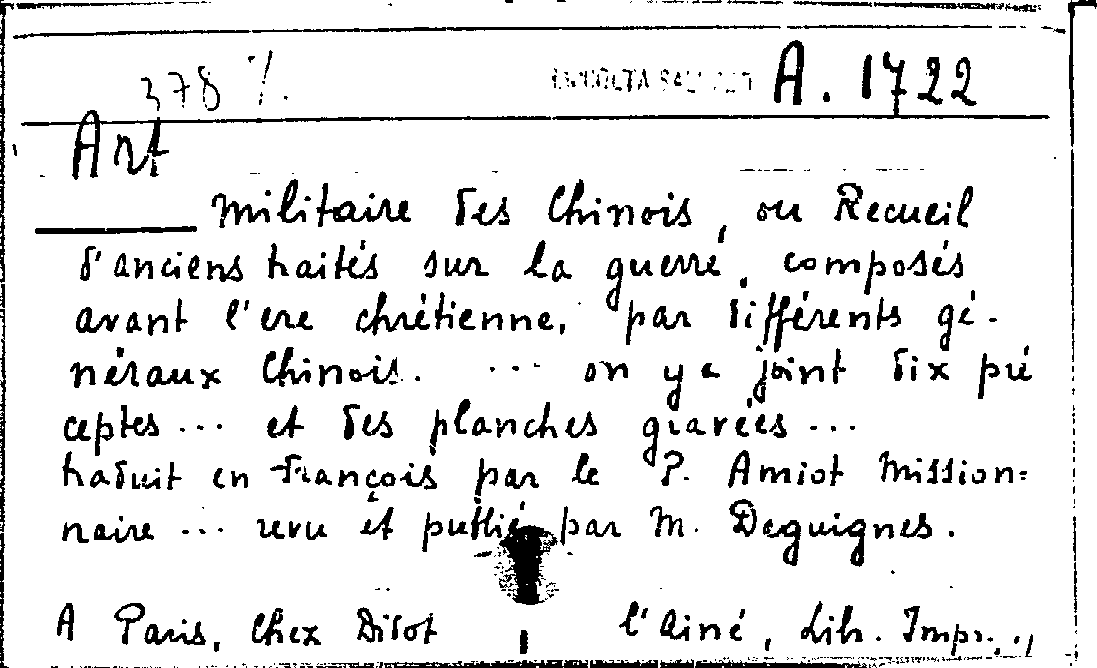 378 %. A. 1722
Art
militaire des Chinois, ou Recueil
d'anciens traités sur la guerre, composés
avant l'ere chrétienne, par différents gé-
néraux Chinois. ... on y a joint dix pré
ceptes ... et des planches gravées ...
traduit en françois par le P. Amiot mission=
naire ... revu et publié par M. Deguignes.
A Paris, chez Didot l'ainé, Lib. Impr..,